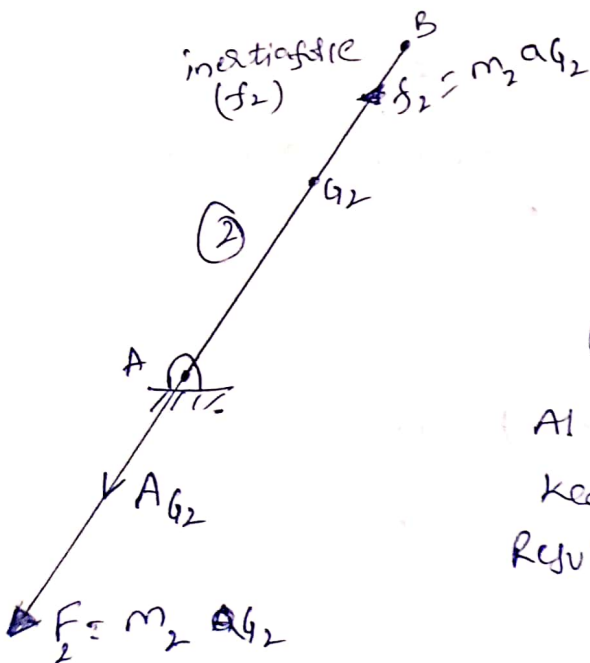 B
inertiaforce
(f2)
f2 = m2 aG2
G2
2
A
AG2
F2 = m2 aG2
Al
Kee
Resu